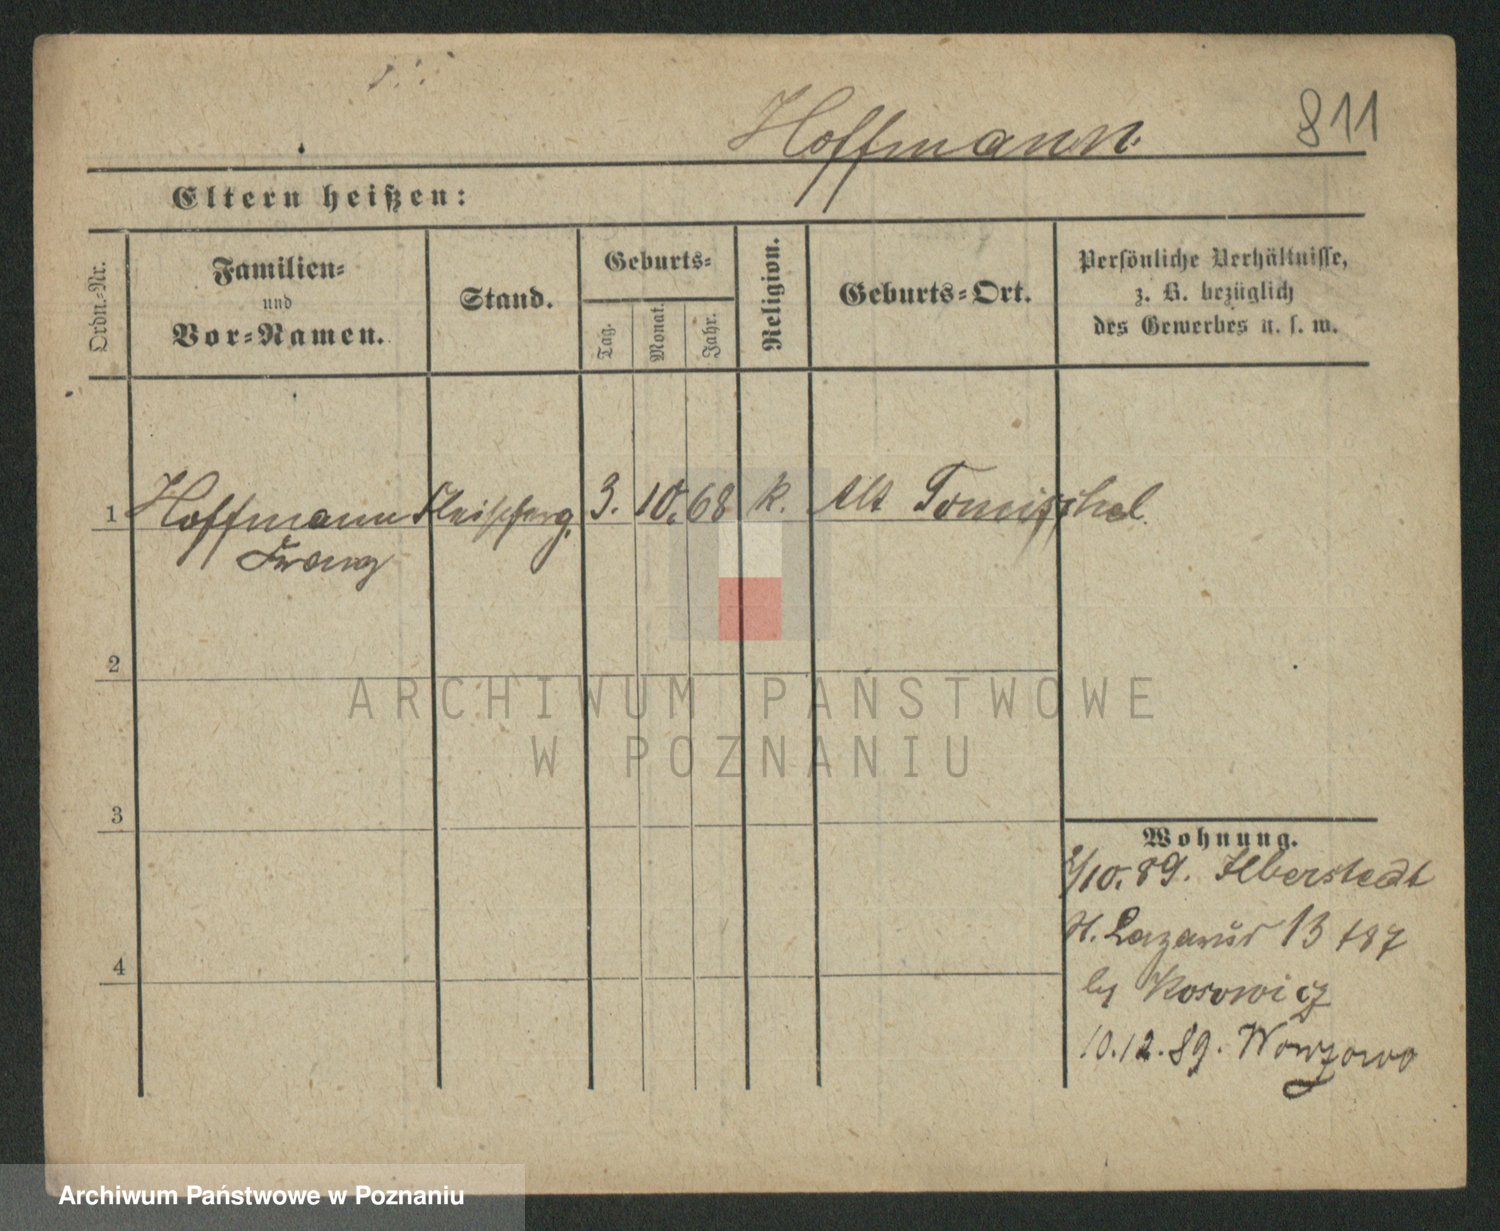 Hoffmann.
811
Eltern heißen:
Ordn.-Nr.
Familien-
und
Vor-Namen.
Stand.
Geburts-
Tag.
Monat.
Jahr.
Religion.
Geburts-Ort.
Persönliche Verhältnisse,
z. B. bezüglich
des Gewerbes u. s. w.
1 Hoffmann Fleischerg. 3. 10. 68 k. Alt Tomischel.
Franz
2
3
4
Wohnung.
/10. 89. Ilberstedt
St. Lazarus 13 187
by Kosowicz
10.12.89.
ARCHIWUM PAŃSTWOWE
W POZNANIU
Archiwum Państwowe w Poznaniu